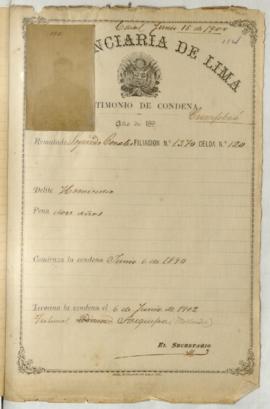 Junio 15 de 1900
NCIARIA DE LIMA
TIMONIO DE CONDENA
Cumplida
Año de 189
Rematado Segundo FILIACION N.° 1370 CELDA N.° 120
Delito Homicidio
Pena doce años
Comienza la condena Junio 6 de 1890
Termina la condena el 6 de Junio de 1902
Tribunal Arequipa
EL SECRETARIO